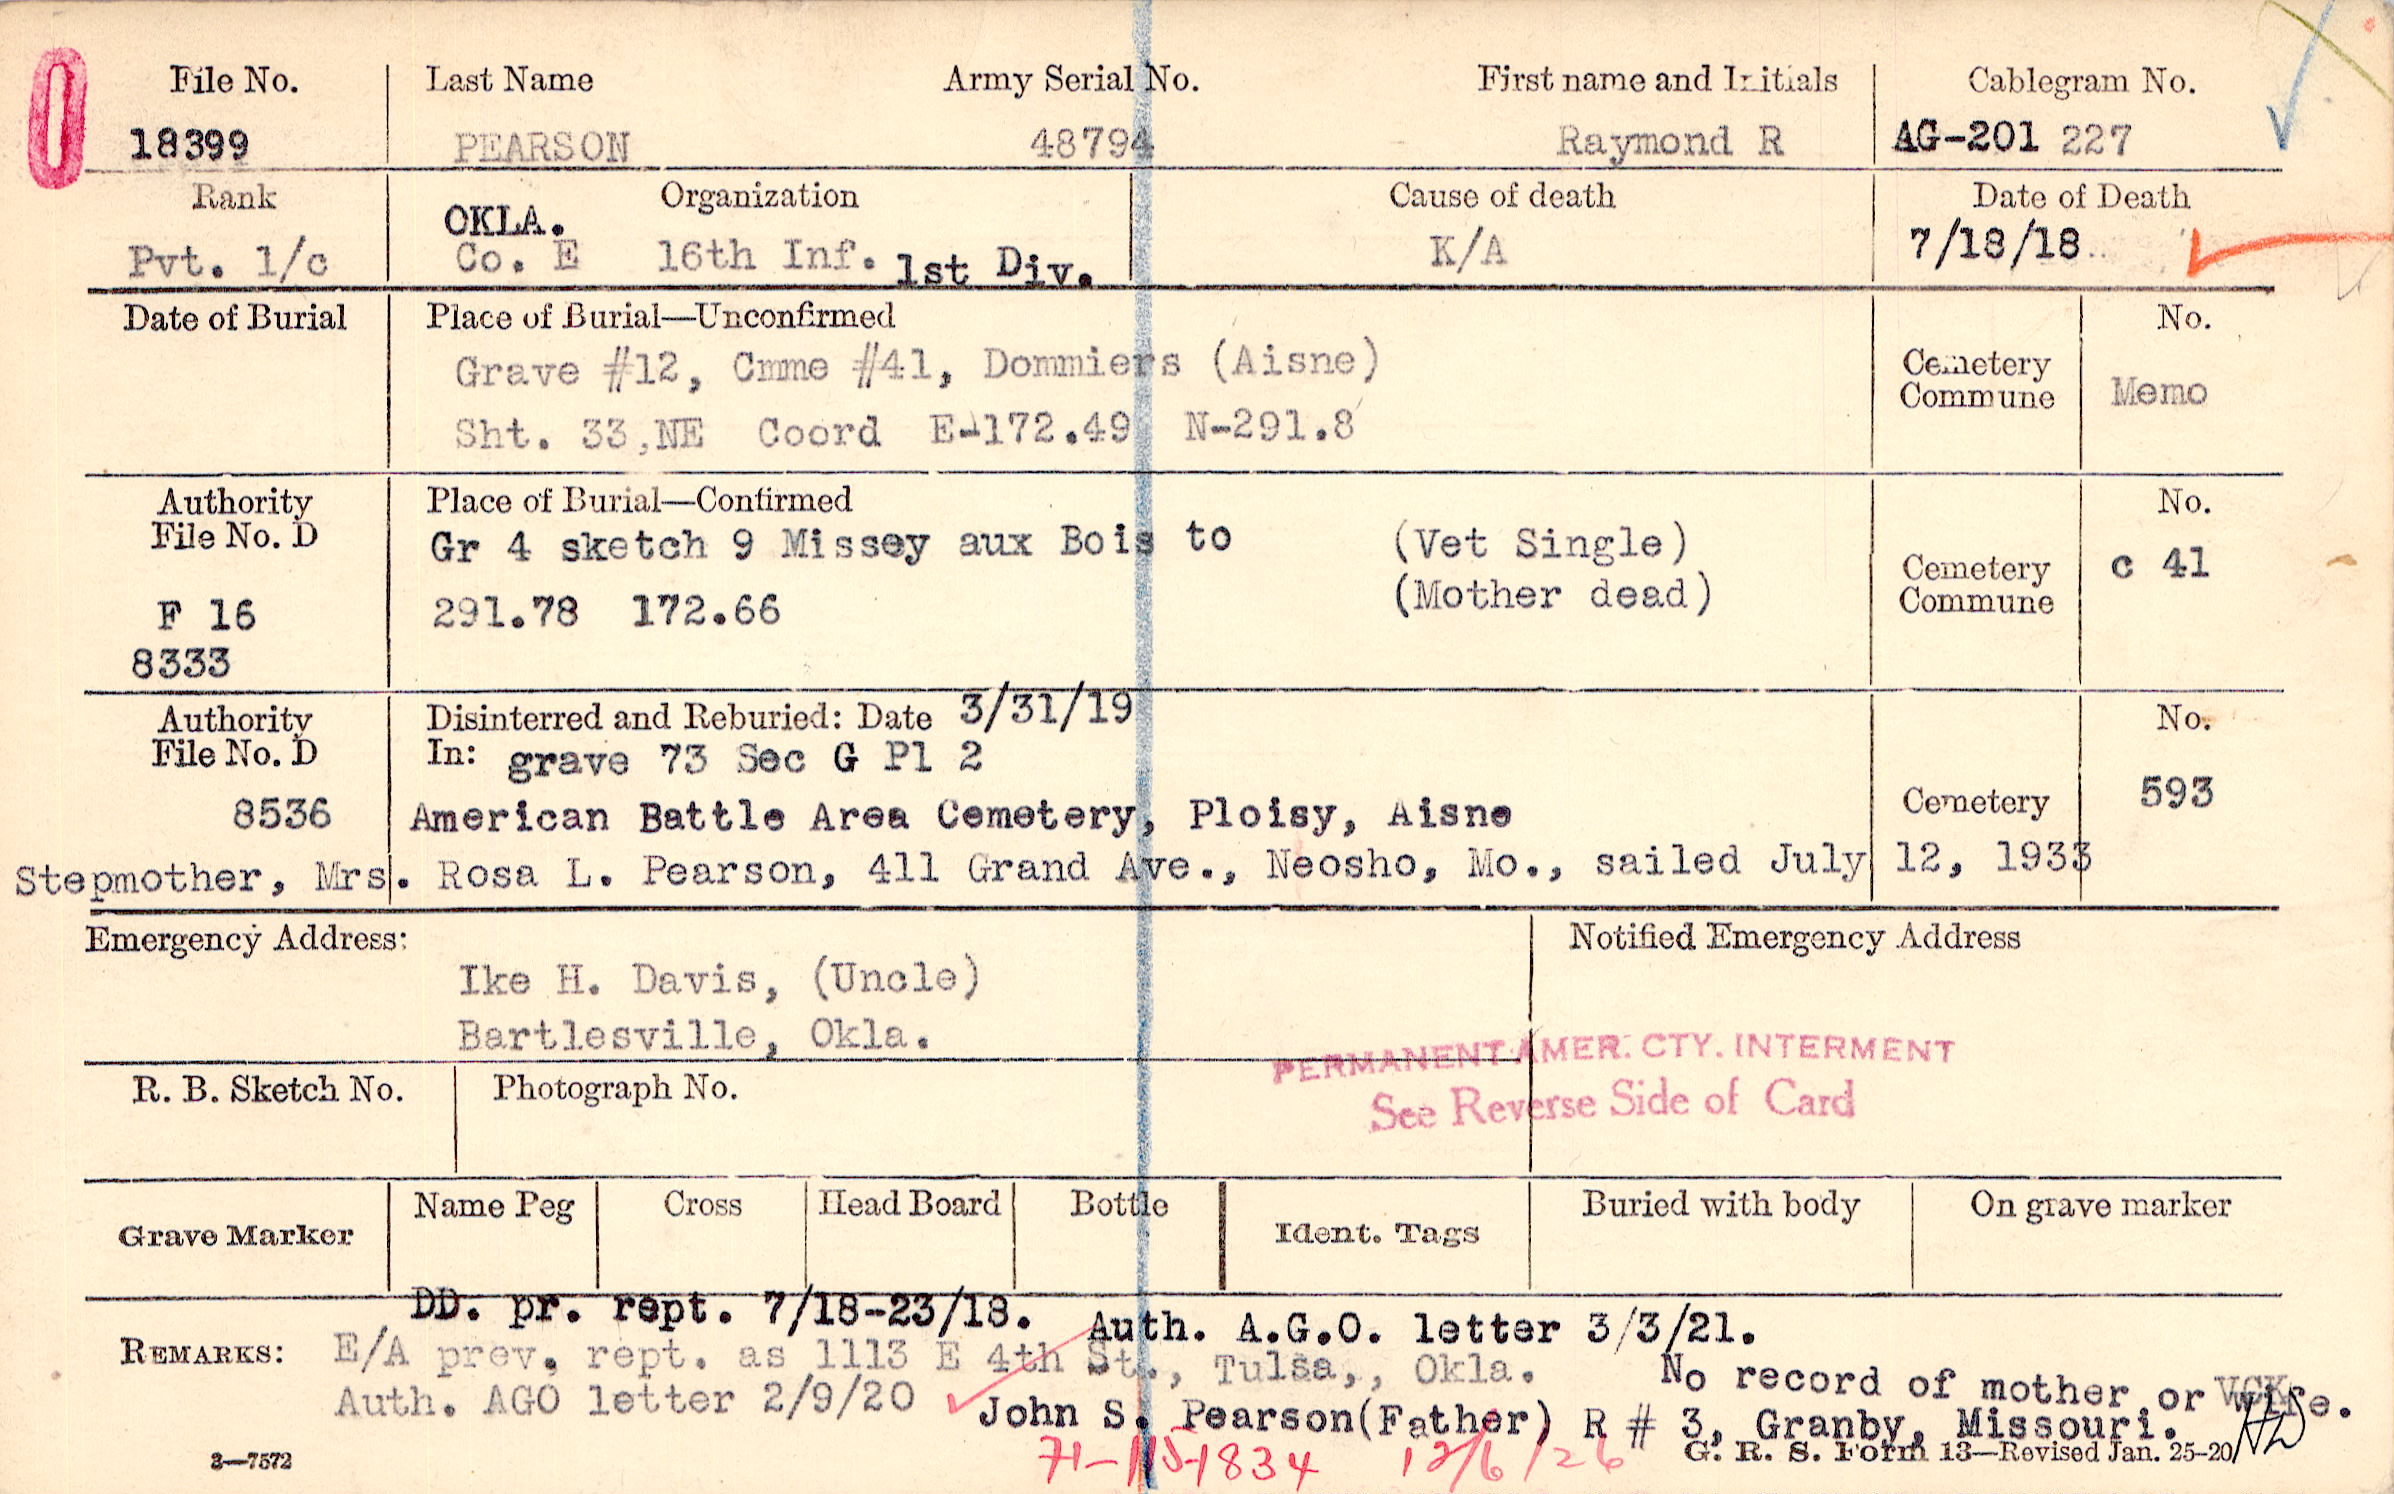 File No. Last Name Army Serial No. First name and Initials Cablegram No.
18399 PEARSON 48794 Raymond R AG-201 227
Rank Organization Cause of death Date of Death
OKLA.
Pvt. 1/c Co. E 16th Inf. 1st Div. K/A 7/18/18
Date of Burial Place of Burial—Unconfirmed No.
Grave #12, Cmme #41, Dommiers (Aisne) Cemetery
Commune Memo
Sht. 33,NE Coord E-172.49 N-291.8
Authority Place of Burial—Confirmed No.
File No. D Gr 4 sketch 9 Missey aux Bois to (Vet Single)
Cemetery c 41
(Mother dead) Commune
F 16 291.78 172.66
8333
Authority Disinterred and Reburied: Date 3/31/19 No.
File No. D In: grave 73 Sec G Pl 2
8536 American Battle Area Cemetery, Ploisy, Aisne Cemetery 593
Stepmother, Mrs. Rosa L. Pearson, 411 Grand Ave., Neosho, Mo., sailed July 12, 1933
Emergency Address: Notified Emergency Address
Ike H. Davis, (Uncle)
Bartlesville, Okla.
PERMANENT AMER. CTY. INTERMENT
See Reverse Side of Card
R. B. Sketch No. Photograph No.
Grave Marker Name Peg Cross Head Board Bottle Ident. Tags Buried with body On grave marker
DD. pr. rept. 7/18-23/18. Auth. A.G.O. letter 3/3/21.
REMARKS: E/A prev. rept. as 1113 E 4th St., Tulsa,, Okla. No record of mother or wife.
Auth. AGO letter 2/9/20 John S. Pearson(Father) R # 3, Granby, Missouri.
3—7572 12/6/26 G. R. S. Form 13—Revised Jan. 25-20